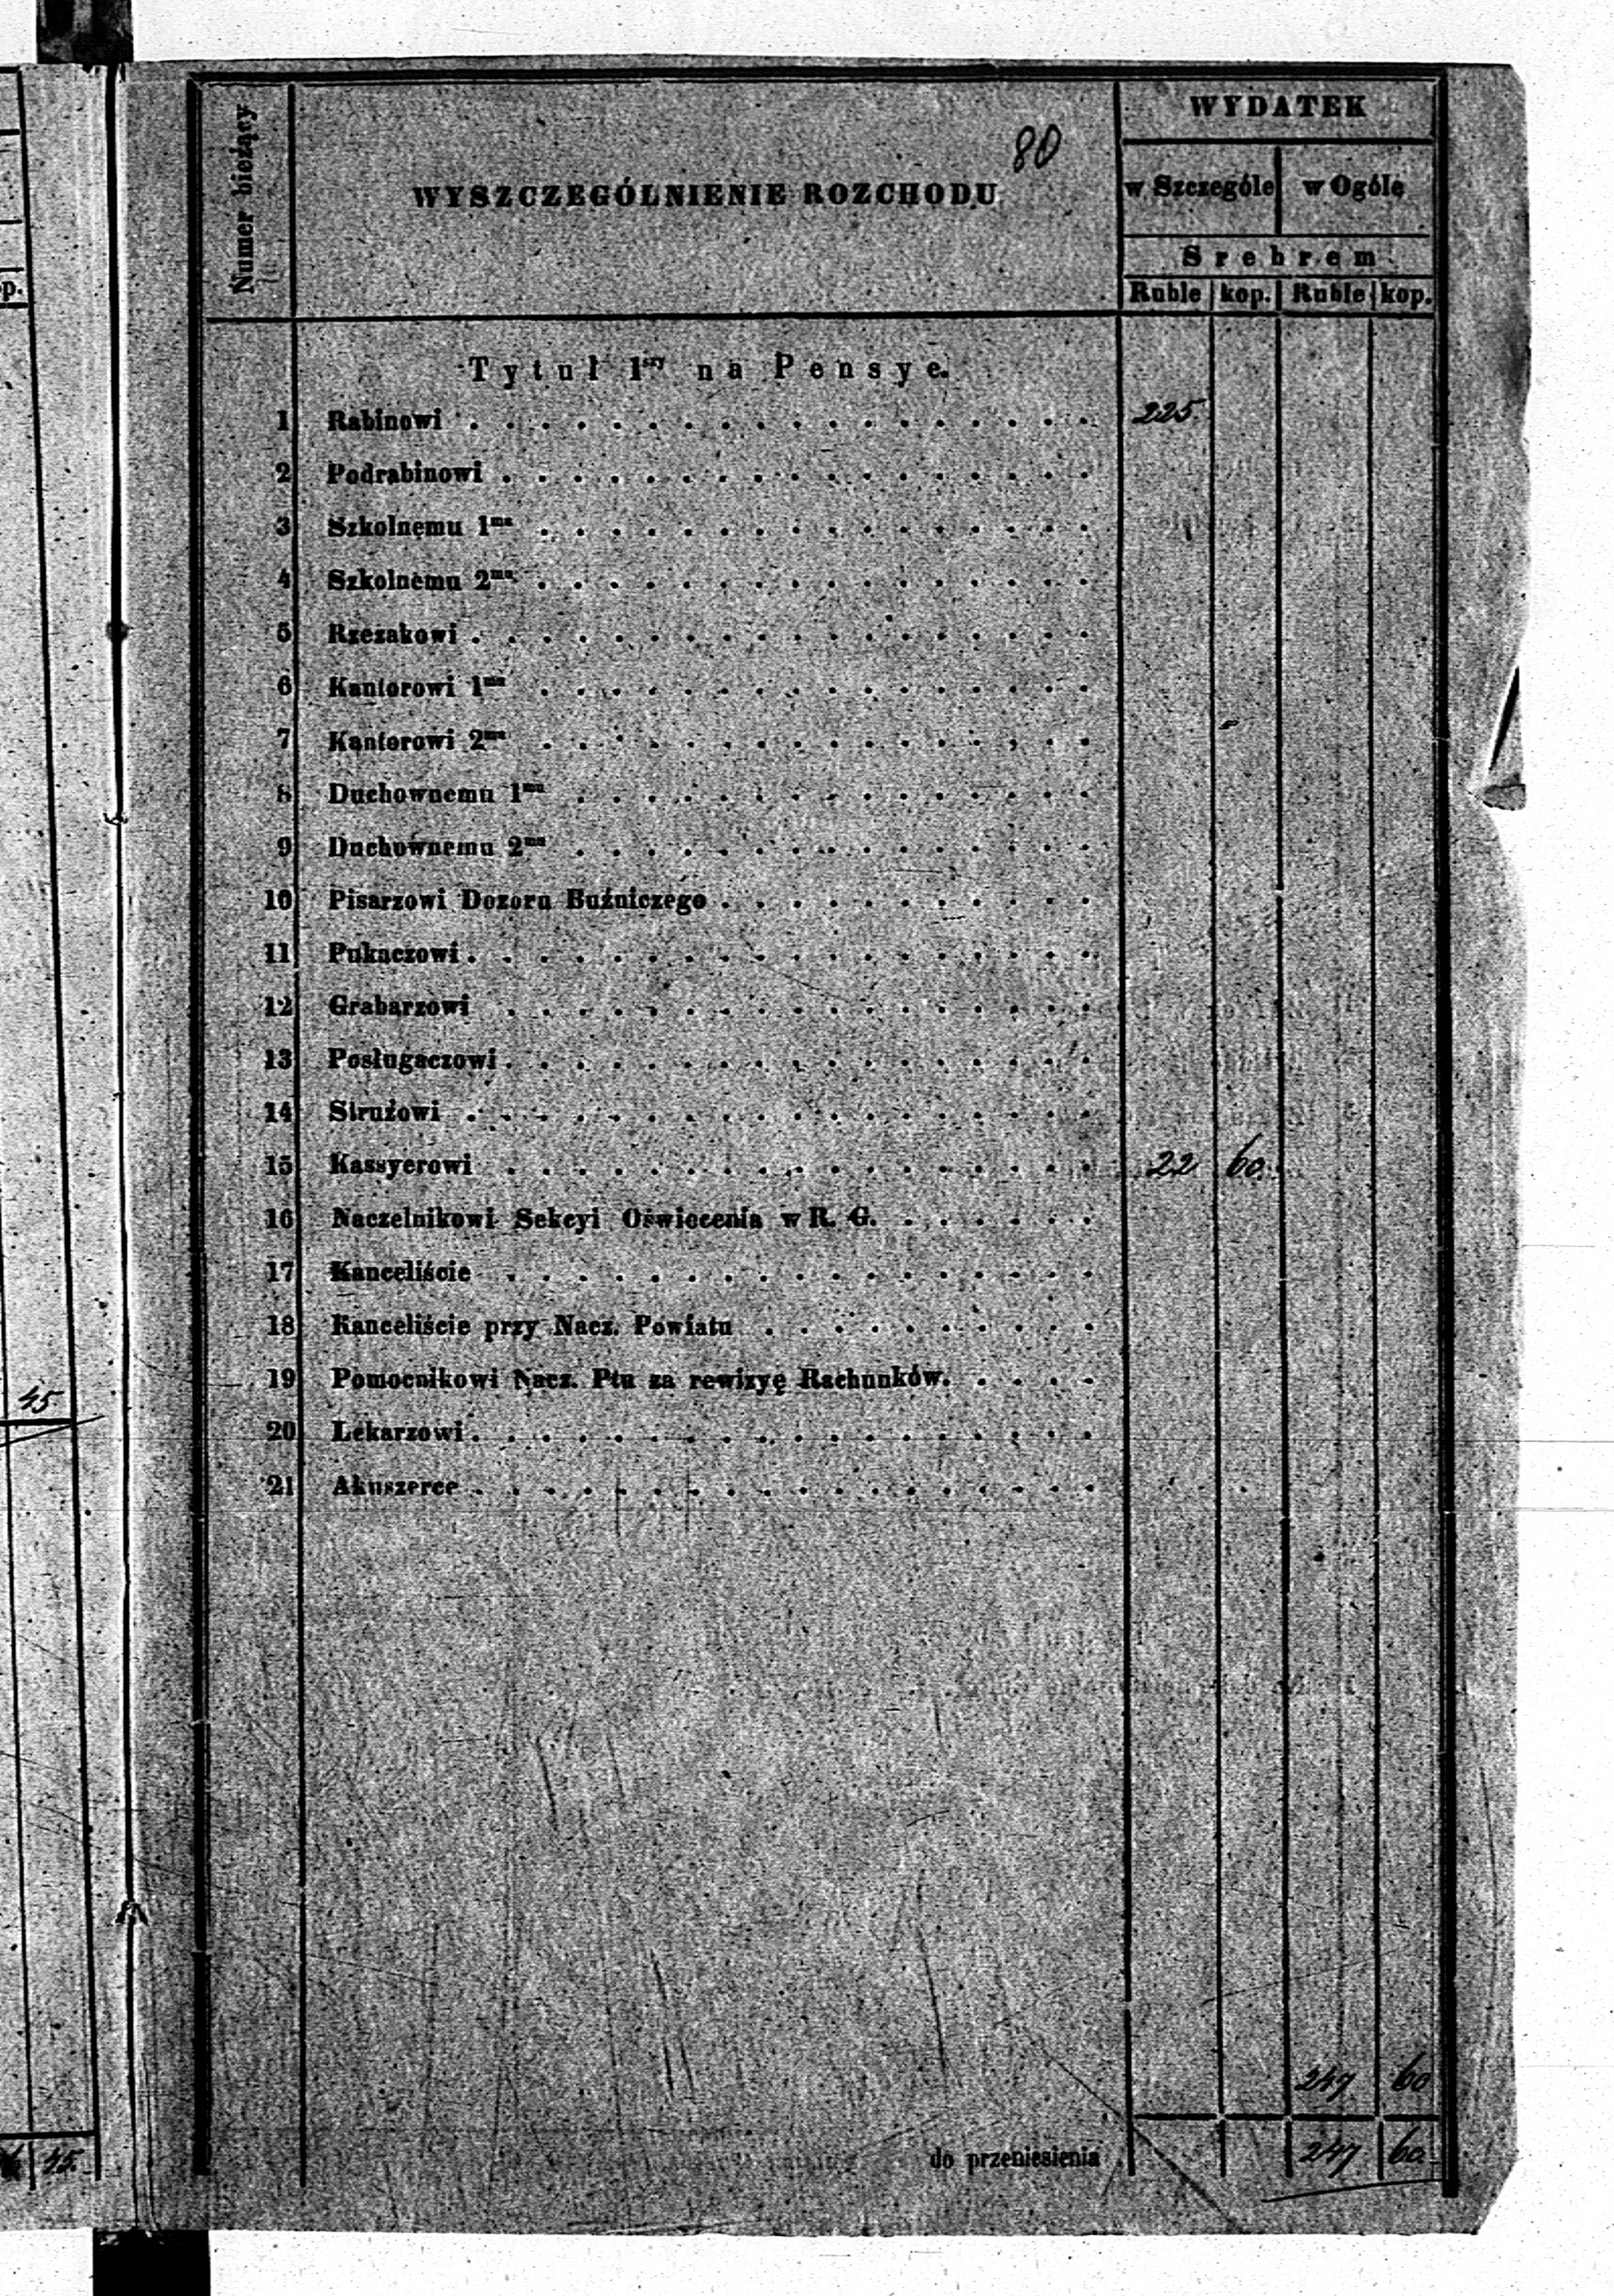 80
Numer bieżący
WYSZCZEGÓLNIENIE ROZCHODU
WYDATEK
w Szczególe w Ogóle
Srebrem
Ruble kop. Ruble kop.
Tytuł 1szy na Pensye.
1 Rabinowi . . . 225.
2 Podrabinowi . . .
3 Szkolnemu 1mu . . .
4 Szkolnemu 2mu . . .
5 Rzezakowi . . .
6 Kantorowi 1mu . . .
7 Kantorowi 2mu . . .
8 Duchownemu 1mu . . .
9 Duchownemu 2mu . . .
10 Pisarzowi Dozoru Bużniczego . . .
11 Pukaczowi . . .
12 Grabarzowi . . .
13 Posługaczowi . . .
14 Strużowi . . .
15 Kassyerowi . . . 22 60.
16 Naczelnikowi Sekcyi Oświecenia w R. G. . . .
17 Kanceliście . . .
18 Kanceliście przy Nacz. Powiatu . . .
19 Pomocnikowi Nacz. Ptu za rewizyę Rachunków. . . .
20 Lekarzowi . . .
21 Akuszerce . . .
247 60
do przeniesienia 247 60.
p.
45
45.